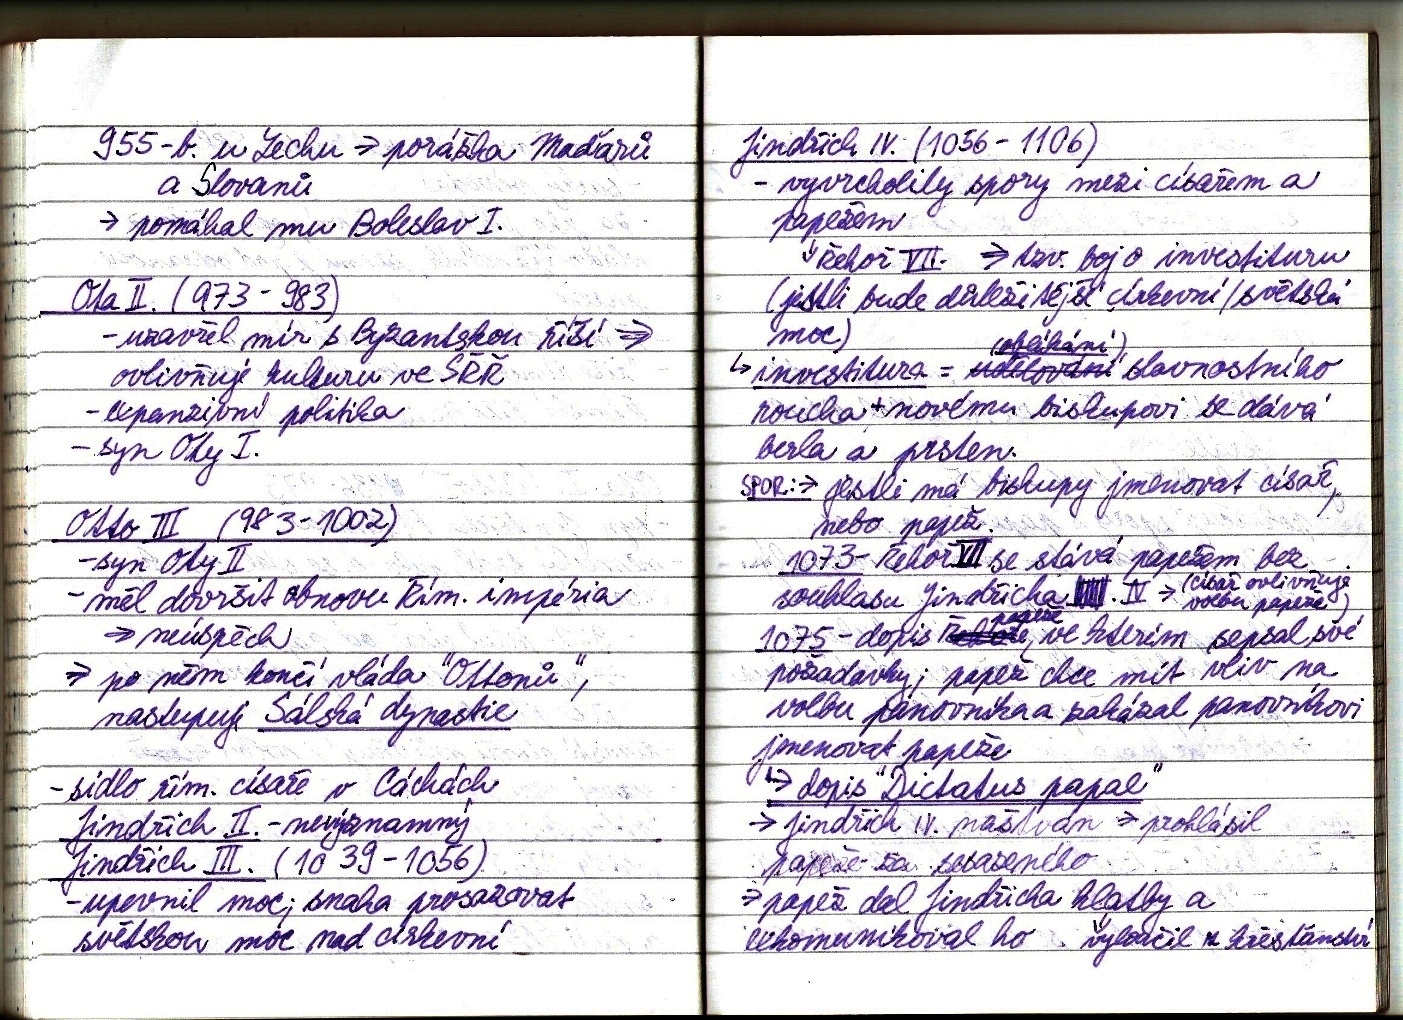 955-b. u Lechu → porážka Maďarů
a Slovanů
→ pomáhal mu Boleslav I.
Ota II. (973-983)
-uzavřel mír s Byzantskou říší ⇒
ovlivňuje kulturu ve SŘŘ
- expanzivní politika
- syn Oty I.
Otto III (983-1002)
-syn Oty II
- měl dovršit obnovu Řím. impéria
→ neúspěch
⇒ po něm končí vláda "Ottonů",
nastupuje Sálská dynastie
-sídlo řím. císaře v Cáchách
Jindřich II. - nevýznamný
Jindřich III. (1039-1056)
-upevnil moc; snaha prosazovat
světskou moc nad církevní
Jindřich IV. (1056-1106)
- vyvrcholily spory mezi císařem a
papežem
↓ Řehoř VII. ⇒ tzv. boj o investituru
(jestli bude důležitější církevní/světská
moc)
(oblékání)
↳ investitura = udělování slavnostního
roucha + novému biskupovi se dává
berla a prsten.
SPOR: → jestli má biskupy jmenovat císař,
nebo papež.
1073- Řehoř VII se stává papežem bez
souhlasu Jindřicha IV → (císař ovlivňuje
volbu papeže)
papeže
1075- dopis Řehoře, ve kterém sepsal své
požadavky; papež chce mít vliv na
volbu panovníka a zakázal panovníkovi
jmenovat papeže
↳ dopis "Dictatus papae"
→ Jindřich IV. naštván ⇒ prohlásil
papeže za sesazeného
⇒ papež dal Jindřicha klatby a
exkomunikoval ho ↓ vyloučil z křesťanství